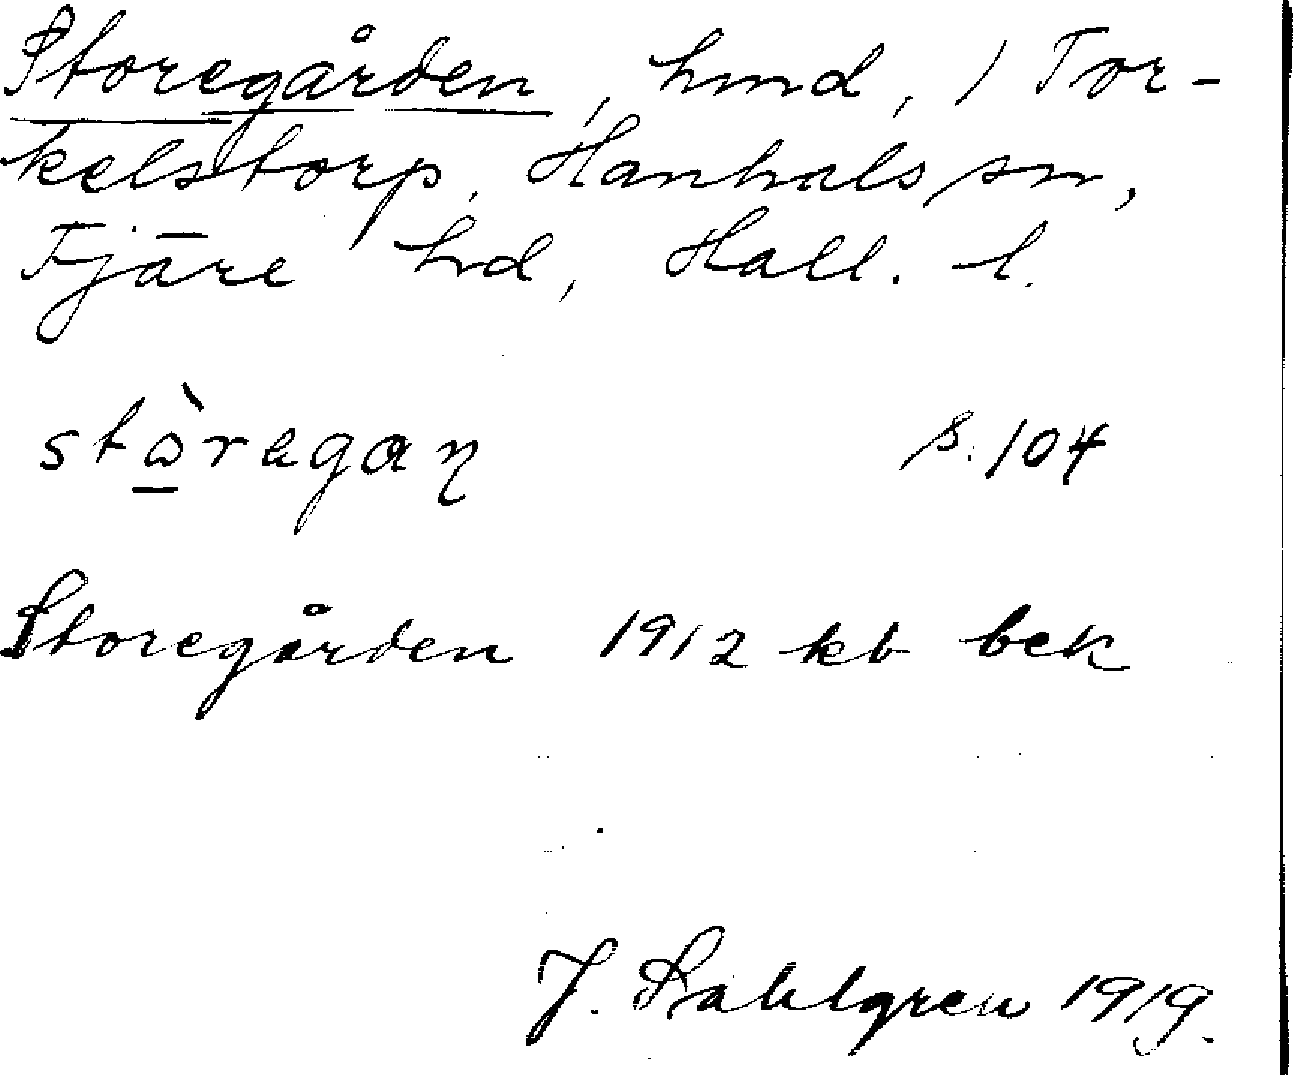 Storegården, hmd, i Tor-
kelstorp, Hanhals sn,
Fjäre hd, Hall. l.
stὼ̲ragaɳ s. 104
Storegården 1912 kb bek
J. Sahlgren 1919.